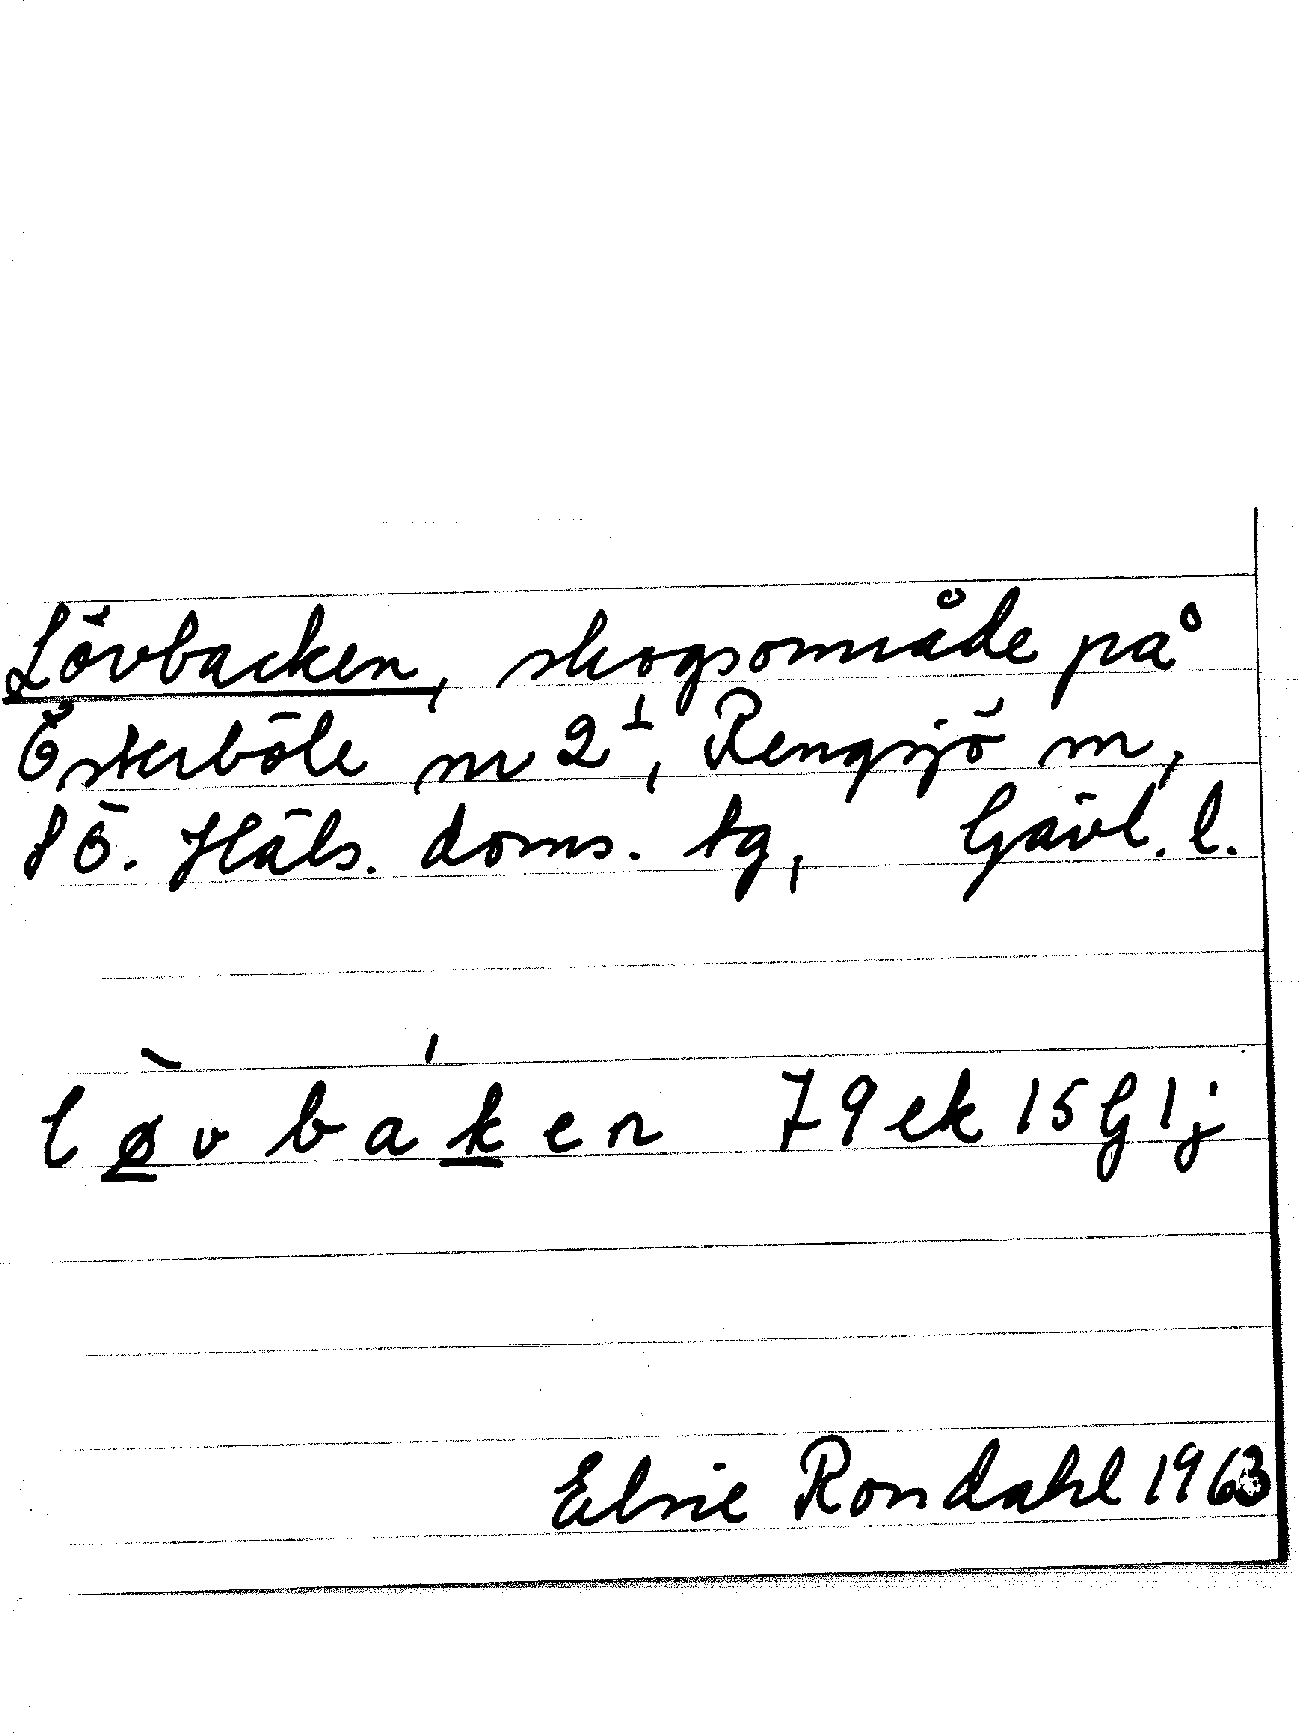 Lövbacken, skogsområde på
Österböle nr 2⊥, Rengsjö sn,
SÖ. Häls. doms. tg, Gävl. l.
lø̱̀vbáḵen 79ek 15G 1j
Elsie Rondahl 1963